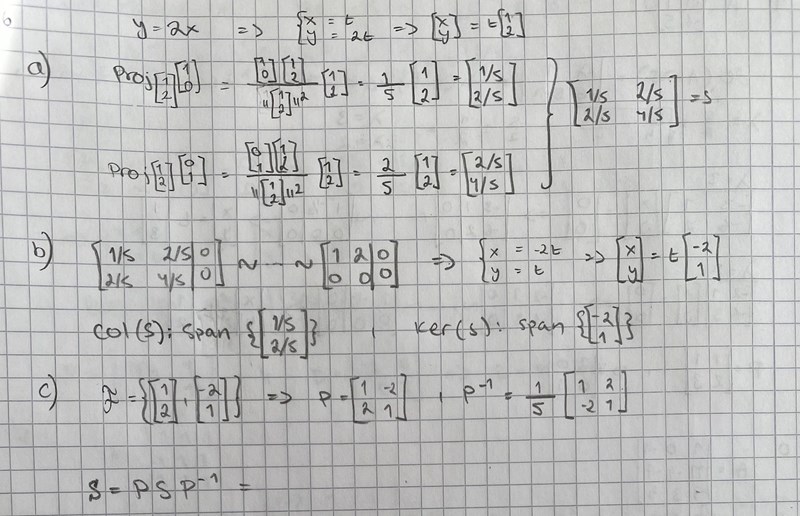 y = 2x => {x = t y = 2t => [x y] = t[1 2]
a) Proj[1 2][1 0] = [1 0][1 2] / "[1 2]"² [1 2] = 1/5 [1 2] = [1/5 2/5] } [1/5 2/5 2/5 4/5] = S
Proj[1 2][0 1] = [0 1][1 2] / "[1 2]"² [1 2] = 2/5 [1 2] = [2/5 4/5]
b) [1/5 2/5 | 0 2/5 4/5 | 0] ~ ... ~ [1 2 | 0 0 0 | 0] => {x = -2t y = t => [x y] = t[-2 1]
Col(S): span {[1/5 2/5]} , ker(S): span {[-2 1]}
c) F = {[1 2], [-2 1]} => P = [1 -2 2 1] , P⁻¹ = 1/5 [1 2 -2 1]
S = P S P⁻¹ =